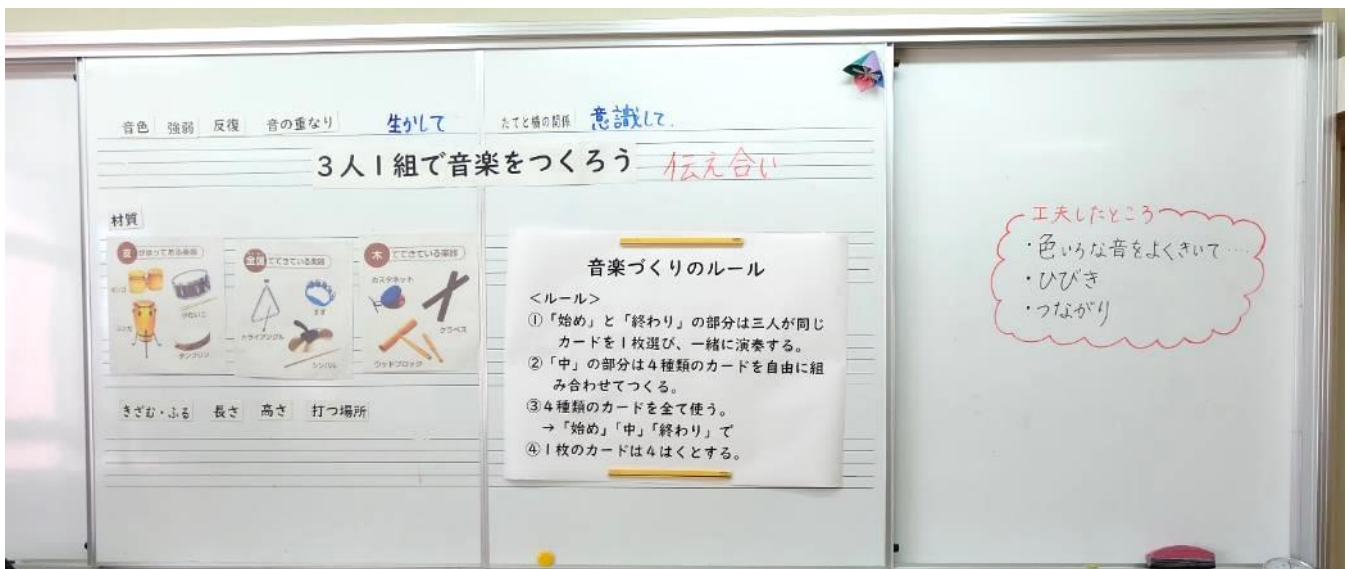 音色 強弱 反復 音の重なり 生かして たてと横の関係 意識して.
3人1組で音楽をつくろう 伝え合い
材質
皮がはってある楽器
ボンゴ
小だいこ
コンガ
タンブリン
金属でできている楽器
トライアングル
すず
シンバル
木でできている楽器
カスタネット
クラベス
ウッドブロック
きざむ・ふる 長さ 高さ 打つ場所
音楽づくりのルール
<ルール>
①「始め」と「終わり」の部分は三人が同じ
カードを1枚選び、一緒に演奏する。
②「中」の部分は4種類のカードを自由に組
み合わせてつくる。
③4種類のカードを全て使う。
→「始め」「中」「終わり」で
④1枚のカードは4はくとする。
工夫したところ
・色いろな音をよくきいて…
・ひびき
・つながり